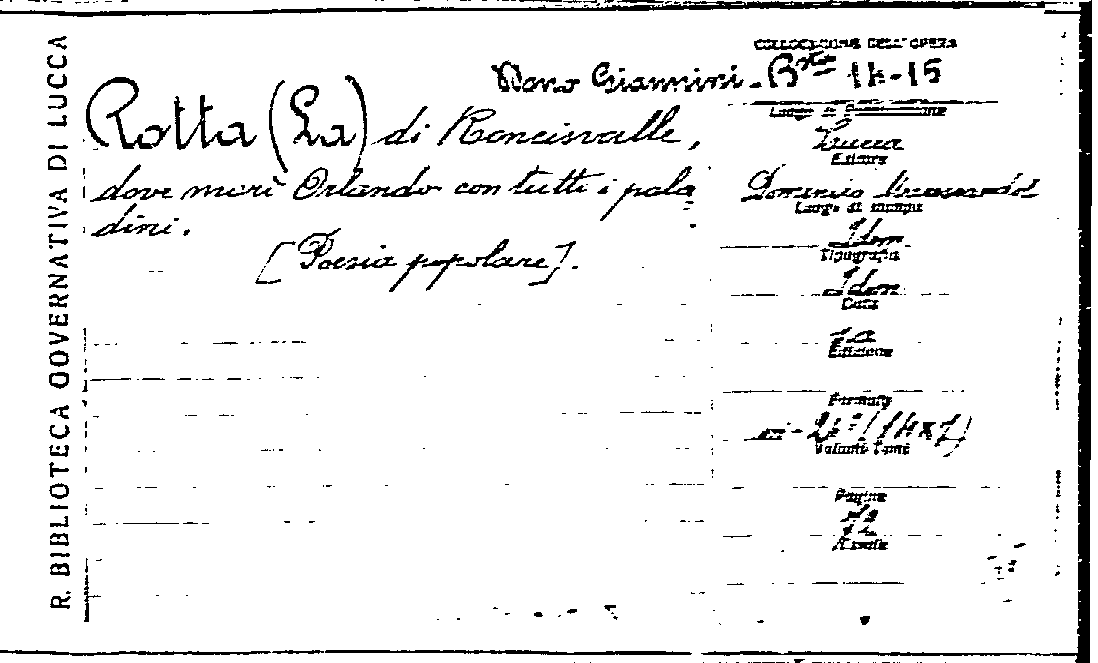 R. BIBLIOTECA GOVERNATIVA DI LUCCA
COLLOCAZIONE DELL'OPERA
Dono Giannini. Bta 14-15
Rotta (La) di Roncisvalle,
dove morì Orlando con tutti i pala
dini.
[Poesia popolare].
Luogo di
Lucca
Editore
Domenico
Luogo di stampa
Idem
Tipografia
Idem
Data
Edizione
Formato
in-24° (14x7)
Volumi-Tomi
Pagine
12